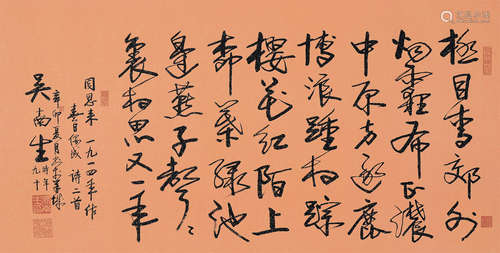 極目青郊外
烟霾布正濃
中原方逐鹿
博浪踵相踪
櫻花紅陌上
柳葉綠池
邊燕子聲々
裏相思又一年
周恩来一九一四年作
春日偶成诗二首
辛卯夏月於羊城
吴南生时年九十